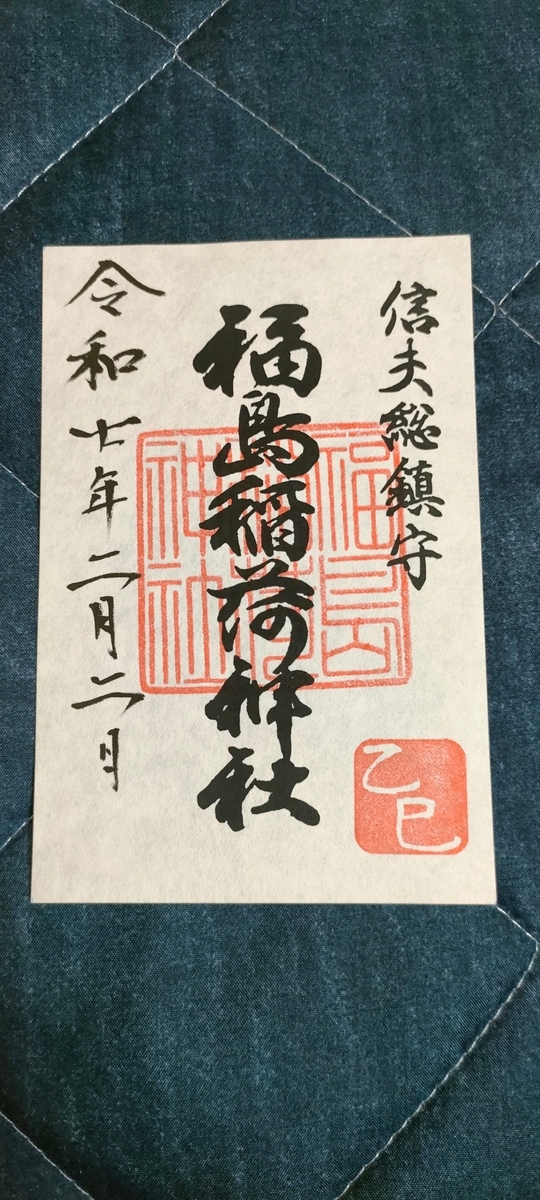 信夫総鎮守
福島稲荷神社
令和七年二月二日
福島稲荷神社
乙巳